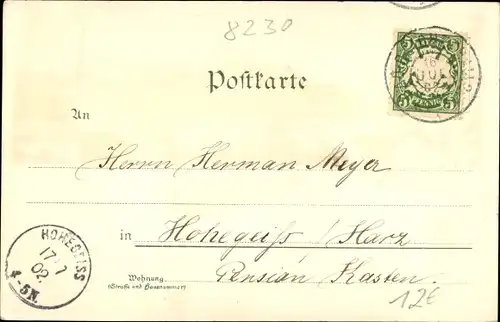 8230
Postkarte
An
Herrn Herman Meyer
in Hohegeiß / Harz
Wohnung
(Straße und Hausnummer)
Pension Kasten.
HOHEGEISS
17 7
02.
4-5N.
12€